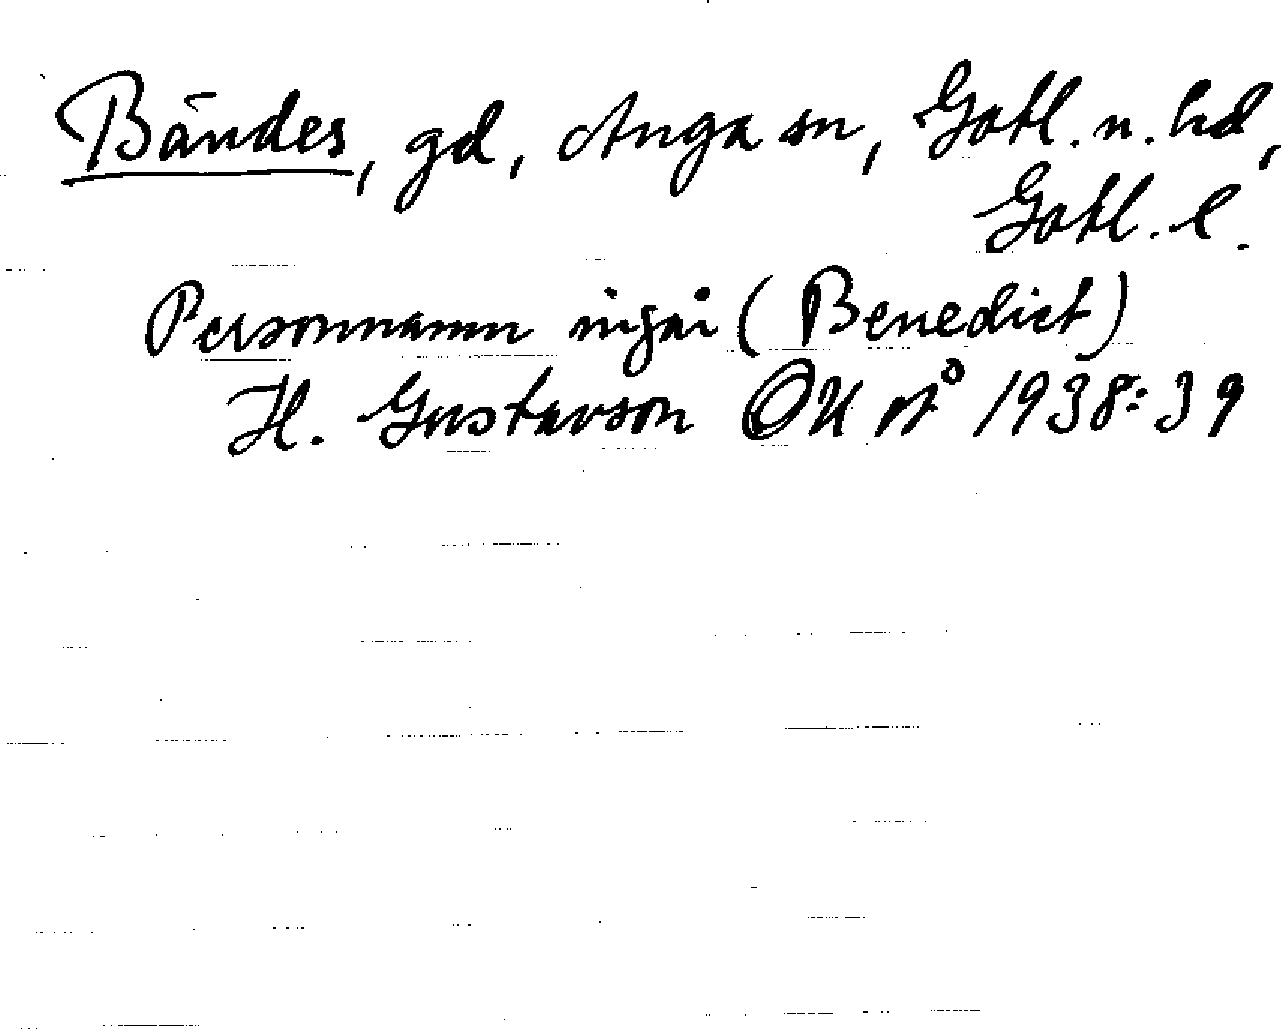 Bändes, gd, Anga sn, Gotl. n. hd,
Gotl. l.
Personnamn ingår (Benedict)
H. Gustavson OU nº 1938:39